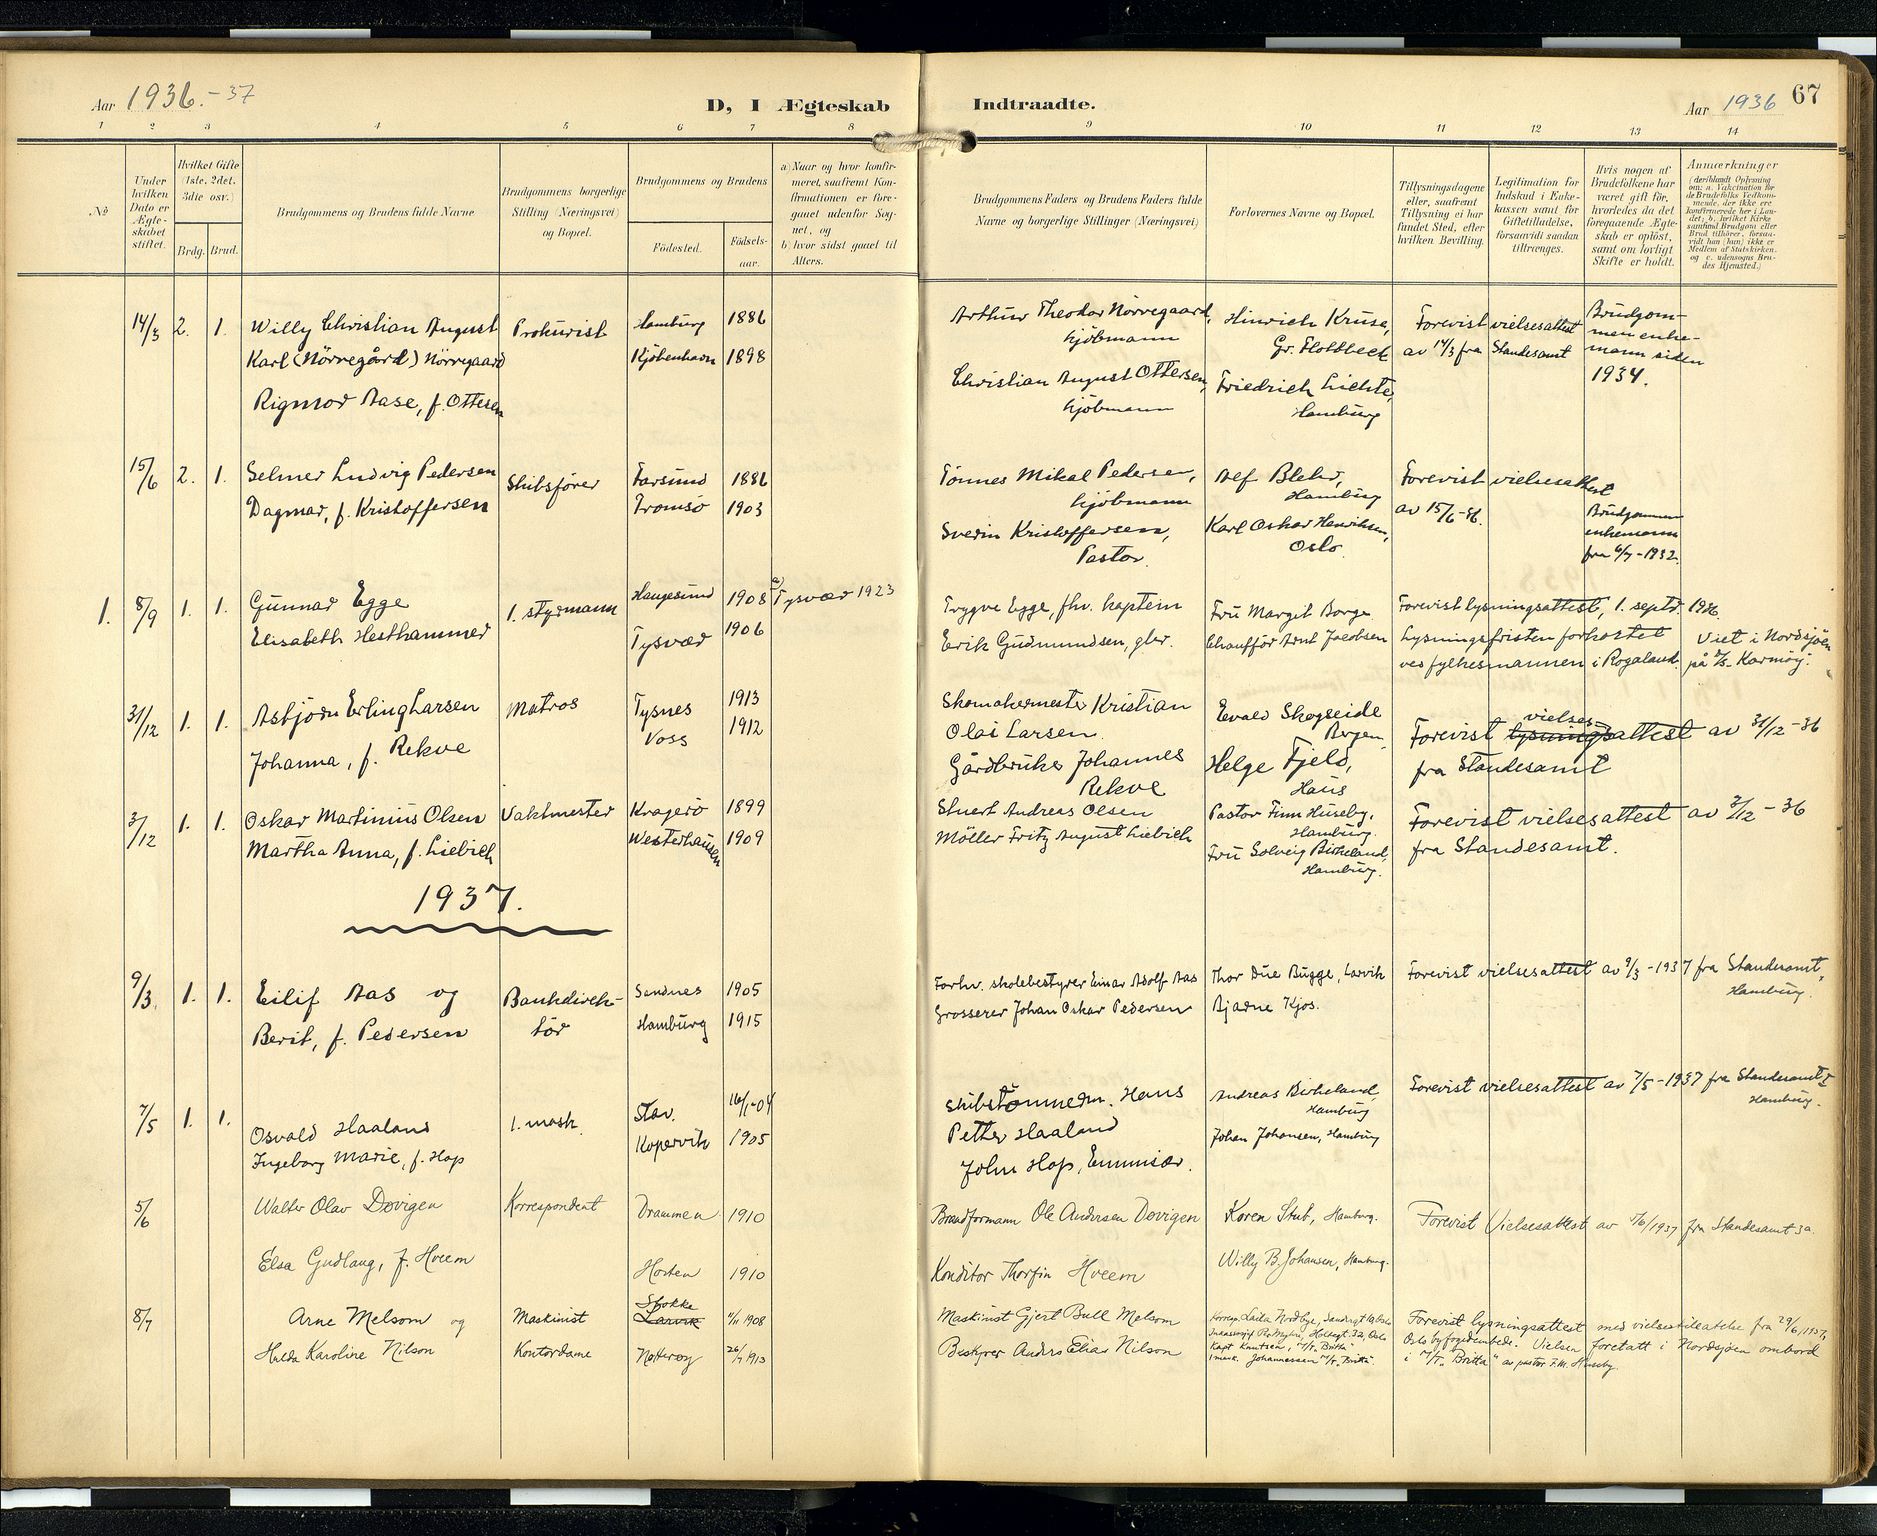 Aar 1936.-37
D, I Ægteskab
Indtraadte.
Aar 1936
67
1 2 3 4 5 6 7 8
9 10 11 12 13 14
№
Under hvilken Dato er Ægteskabet stiftet.
Hvilket Gifte (1ste, 2det, 3die osv.)
Brdg. Brud.
Brudgommens og Brudens fulde Navne
Brudgommens borgerlige Stilling (Næringsvei) og Bopæl.
Brudgommens og Brudens
Fødested.
Fødselsaar.
a) Naar og hvor konfirmeret, saafremt Konfirmationen er foregaaet udenfor Sognet, og
b) hvor sidst gaaet til Alters.
Brudgommens Faders og Brudens Faders fulde Navne og borgerlige Stillinger (Næringsvei)
Forlovernes Navne og Bopæl.
Tillysningsdagene eller, saafremt Tillysning ei har fundet Sted, efter hvilken Bevilling.
Legitimation for Indskud i Enkekassen samt for Giftetilladelse, forsaavidt saadan tiltrænges.
Hvis nogen af Brudefolkene har været gift før, hvorledes da det foregaaende Ægteskab er opløst, samt om lovligt Skifte er holdt.
Anmerkninger
(deriblandt Oplysning om: a. Vakcination for de Brudefolks Vedkommende, der ikke ere konfirmerede her i Landet; b. hvilket Kirkesamfund Brudgom eller Brud tilhører, forsaavidt han (hun) ikke er Medlem af Statskirken, og c. udensogns Brudes Hjemsted.)
14/3 2. 1. Willy Christian August Prokurist Hamburg 1886
Karl (Nörregård) Nörregaard Kjöbenhavn 1898
Rigmor Aase, f. Ottesen
Arthur Theodor Nörregaard,
kjöbmann
Christian August Ottersen,
kjöbmann
Hinrich Kruse,
Gr. Flottbeck
Friedrich Lichte,
Hamburg
Forevist vielsesattest
av 14/3 fra Standesamt
Brudgommen
enkemann siden
1934.
15/6 2. 1. Selmer Ludvig Pedersen Skibsfører Farsund 1886
Dagmar, f. Kristoffersen Tromsö 1903
Tönnes Mikal Pedersen,
kjöbmann
Sverin Kristoffersen,
Pastor.
Alf Blehr,
Hamburg
Karl Oskar Henriksen,
Oslo.
Forevist vielsesattest
av 15/6-36.
Brudgommen
enkemann
fra 6/7-1932.
1. 8/9 1. 1. Gunnar Egge 1. styrmann Haugesund 1908 a) Tysvær 1923
Elisabeth Hesthammer Tysvær 1906
Trygve Egge, fhv. kaptein
Erik Gudmundsen, gbr.
Fru Margit Borge
Chaufför Arnt Jacobsen
Forevist lysningsattest, 1. septr. 1936.
Lysningsfristen forkortet
ves fylkesmannen i Rogaland.
Viet i Nordsjöen
på D/S. Karmöy.
31/12 1. 1. Asbjörn Erling Larsen Matros Tysnes 1913
Johanna, f. Rekve Voss 1912
Skomakermester Kristian
Olai Larsen.
Gårdbruker Johannes
Rekve
Evald Skogseide
Bergen
Helge Fjeld,
Haus
Forevist lysningsattest vielses av 31/12-36
fra Standesamt
3/12 1. 1. Oskar Martinius Olsen Vaktmester Kragerö 1899
Martha Anna, f. Liebich Westerhausen 1909
Stuert Andreas Olsen
Möller Fritz August Liebich
Pastor Finn Huseby,
Hamburg.
Fru Solveig Birkeland,
Hamburg.
Forevist vielsesattest av 3/12-36
fra Standesamt.
1937.
9/3 1. 1. Eilif Aas og Bankdirektör Sandnes 1905
Berit, f. Pedersen Hamburg 1915
Forhv. skolebestyrer Einar Adolf Aas
Grosserer Johan Oskar Pedersen
Thor Due Bugge, Larvik
Bjarne Kjos.
Forevist vielsesattest av 9/3-1937 fra Standesamt,
Hamburg.
7/5 1. 1. Osvald Haaland 1. mask. Stav. 16/1-04
Ingeborg Marie, f. Hop Kopervik 1905
Skibstömmerm. Hans
Petter Haaland
John Hop, Emmisær.
Andreas Birkeland,
Hamburg
Johan Johansen, Hamburg
Forevist vielsesattest av 7/5-1937 fra Standesamt I
Hamburg.
5/6 Walter Olav Dovigen Korrespondent Drammen 1910
Elsa Gudlaug, f. Hveem Horten 1910
Brandformann Ole Andersen Dovigen
Konditor Thorfin Hveem
Karen Stub, Hamburg.
Willy B. Johansen, Hamburg.
Forevist Vielsesattest av 5/6/1937 fra Standesamt 3a
8/7 Arne Melsom og Maskinist Stokke Larvik 11/11 1908
Hulda Karoline Nilson Kontordame Nøtterøy 26/7 1913
Maskinist Gjert Bull Melsom
Bestyrer Anders Elias Nilson
Kapt Knutsen, M/T. "Britta"
1 mask. Johannessen M/T. "Britta".
Forevist lysningsattest med vielsestilladelse fra 29/6 1937,
Oslo byfogedembede. Vielsen foretatt i Nordsjøen ombord
i M/T. "Britta" av pastor F.M. Huseby.